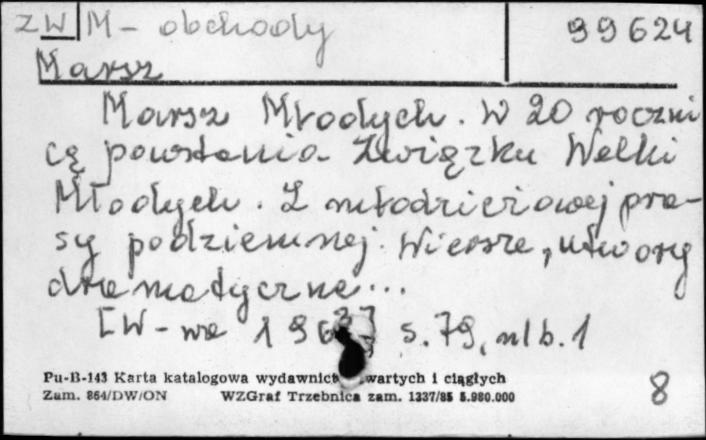 ZW M - obchody 99624
Marsz
Marsz Młodych. W 20 roczni
cę powstania Związku Walki
Młodych. Z młodzieżowej pra-
sy podziemnej. Wiersze, utwory
dramatyczne...
[W-wa 196 ] s. 79, nlb. 1
Pu-B-143 Karta katalogowa wydawnict wartych i ciągłych
Zam. 864/DW/ON WZGraf Trzebnica zam. 1337/85 5.980.000
8